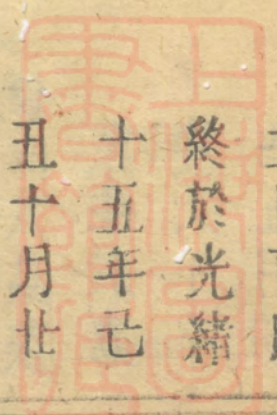 終於光緒
十五年己
丑十月廿